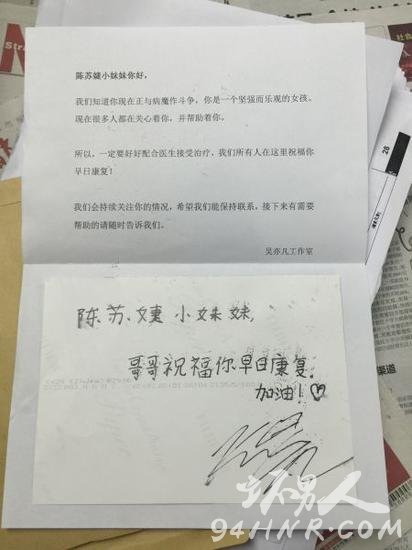 陈苏婕小妹妹你好，
我们知道你现在正与病魔作斗争，你是一个坚强而乐观的女孩。
现在很多人都在关心着你，并帮助着你。
所以，一定要好好配合医生接受治疗，我们所有人在这里祝福你
早日康复！
我们会持续关注你的情况，希望我们能保持联系，接下来有需要
帮助的请随时告诉我们。
吴亦凡工作室
陈苏婕小妹妹，
哥哥祝福你早日康复.
加油！♡
环男人
94HNR.COM
28